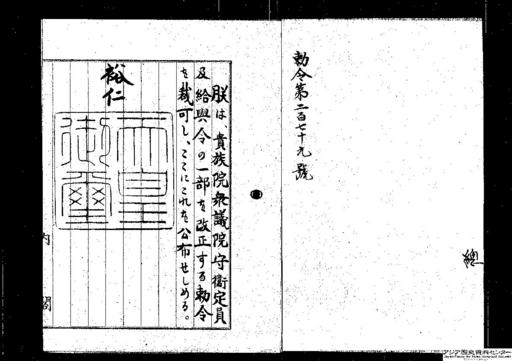 勅令第二百七十九號
總
朕は、貴族院衆議院守衞定員
及給與令の一部を改正する勅令
を裁可し、ここにこれを公布せしめる。
裕仁
天皇
御璽
内閣
アジア歴史資料センター